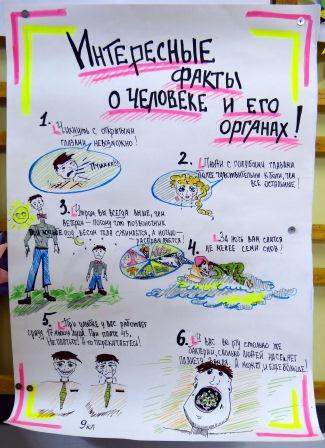 Интересные
факты
о человеке и его
органах!
1. Чихнуть с открытыми
глазами невозможно!
Пчхи!!!
2. Люди с голубыми глазами
более чувствительны к боли, чем
все остальные!
3. Утром вы всегда выше, чем
вечером – потому что позвоночник
под весом тела сжимается, а ночью –
расправляется!
4. За ночь вам снятся
не менее семи снов!
5. При улыбке у вас работает
сразу 17 мышц лица. При плаче 43.
6. У вас во рту столько же
бактерий, сколько людей населяет
А может и ещё больше!
9 кл